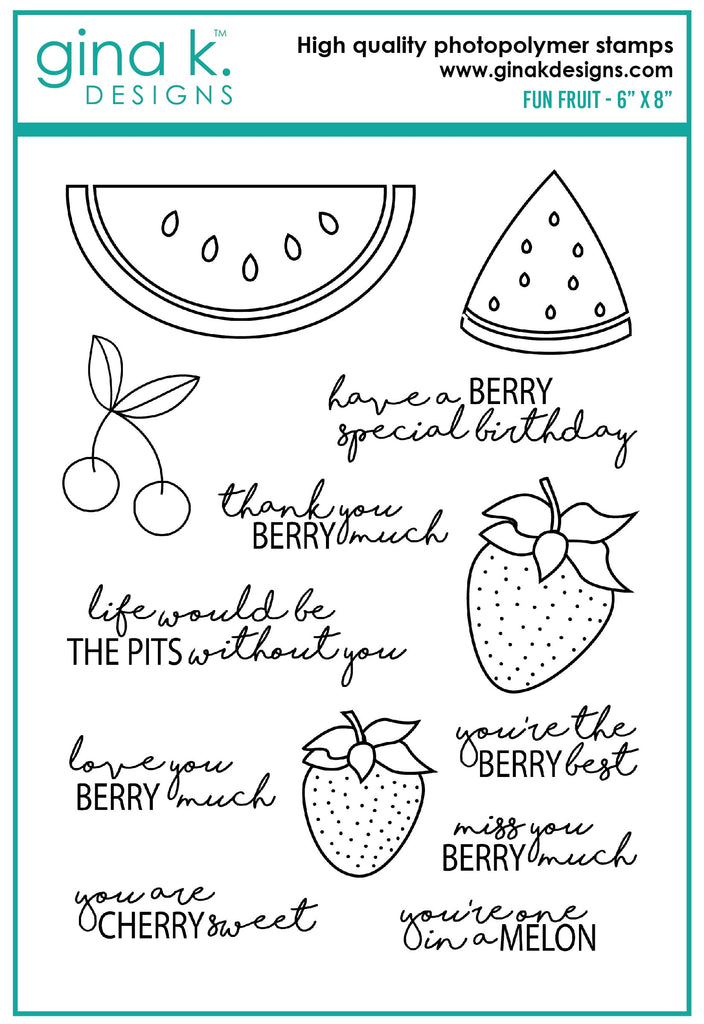 gina k.™
DESIGNS
High quality photopolymer stamps
www.ginakdesigns.com
FUN FRUIT - 6” X 8”
have a BERRY
special birthday
thank you
BERRY much
life would be
THE PITS without you
you're the
BERRY best
love you
BERRY much
miss you
BERRY much
you are
CHERRY sweet
you're one
in a MELON